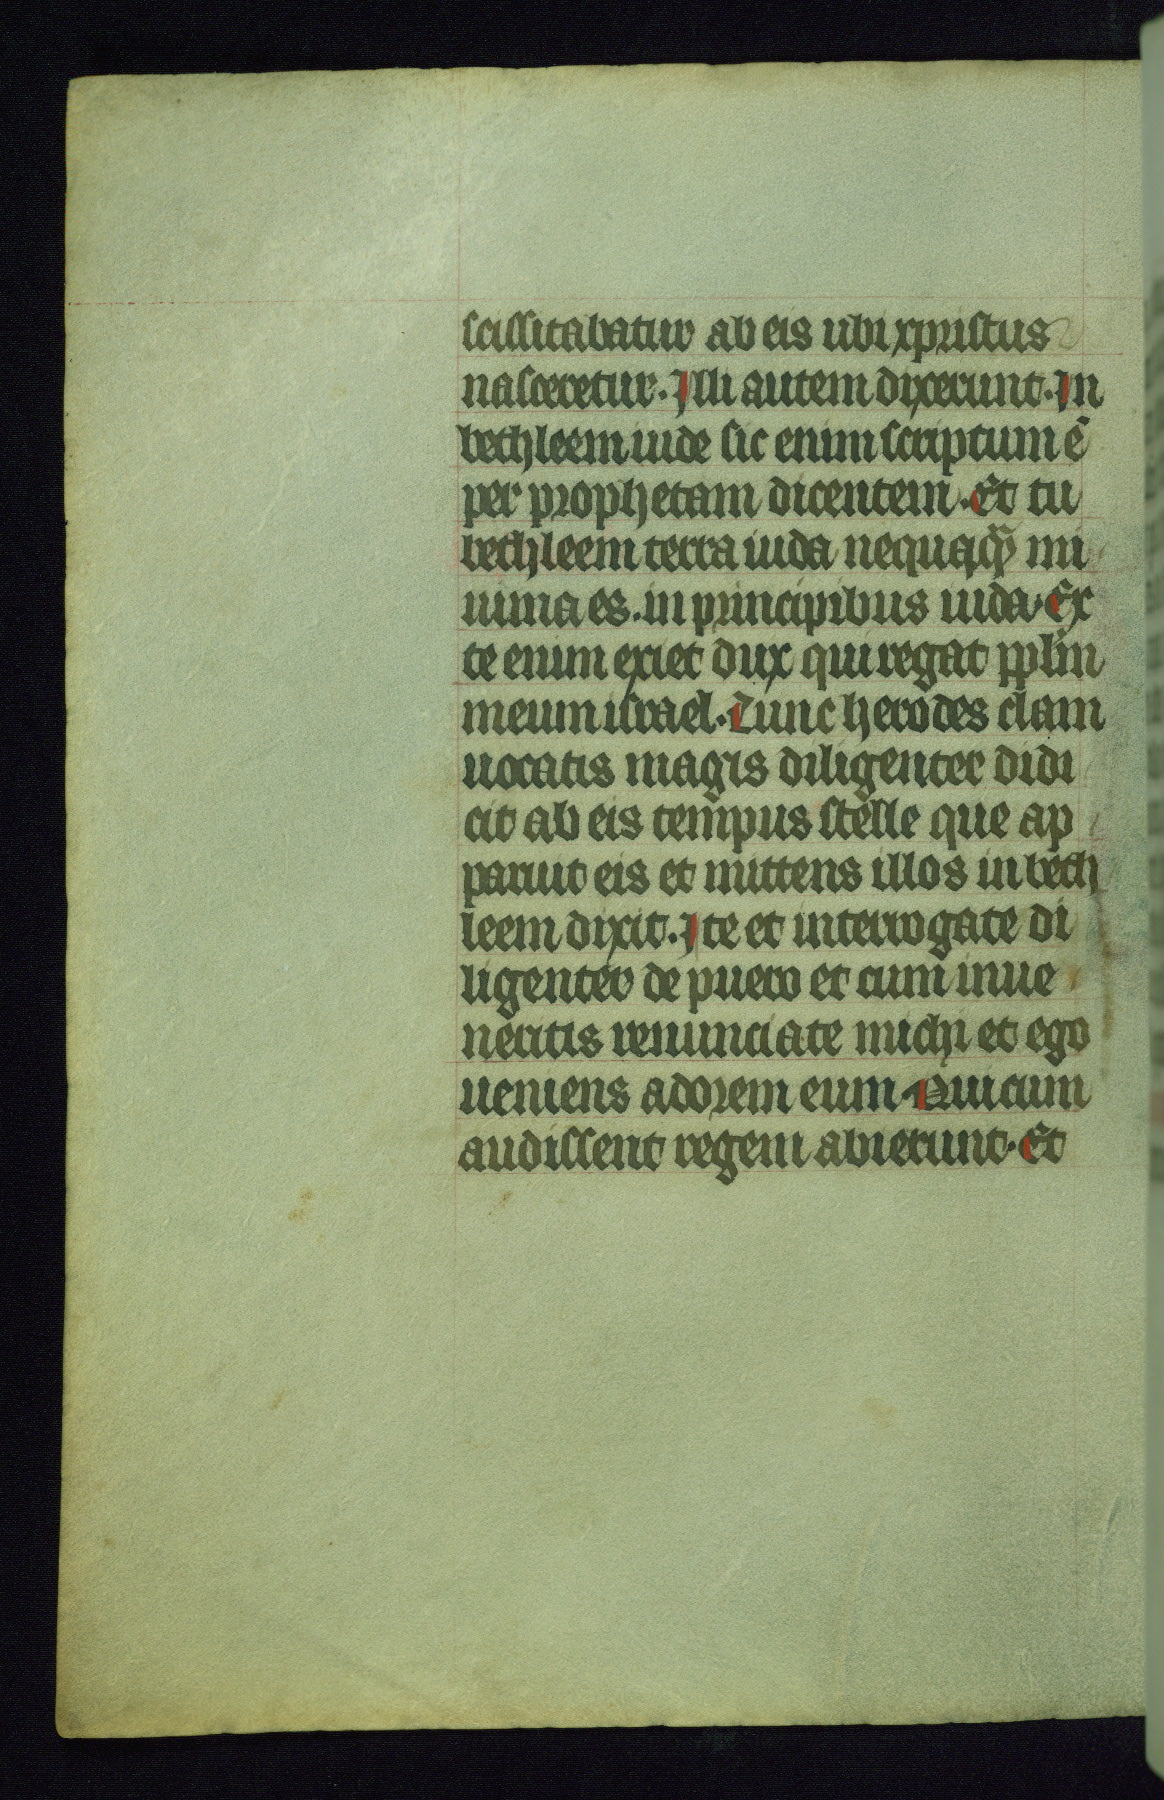 scissitabatur ab eis ubi xpristus
nasceretur. Illi autem dixerunt. In
bethleem iude sic enim scriptum ē
per prophetam dicentem. Et tu
bethleem terra iuda nequaq̄ mi
nima es. in principibus iuda. Ex
te enim exiet dux qui regat pplm̄
meum israel. Tunc herodes clam
uocatis magis diligenter didi
cit ab eis tempus stelle que ap
paruit eis et mittens illos in beth
leem dixit. Ite et interrogate di
ligenter de puero et cum inue
neritis renunciate michi et ego
ueniens adorem eum. Qui cum
audissent regem abierunt. Et